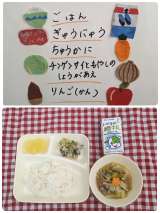 ごはん
ぎゅうにゅう
ちゅうかに
チンゲンサイともやしの
しょうがあえ
りんご(かん)